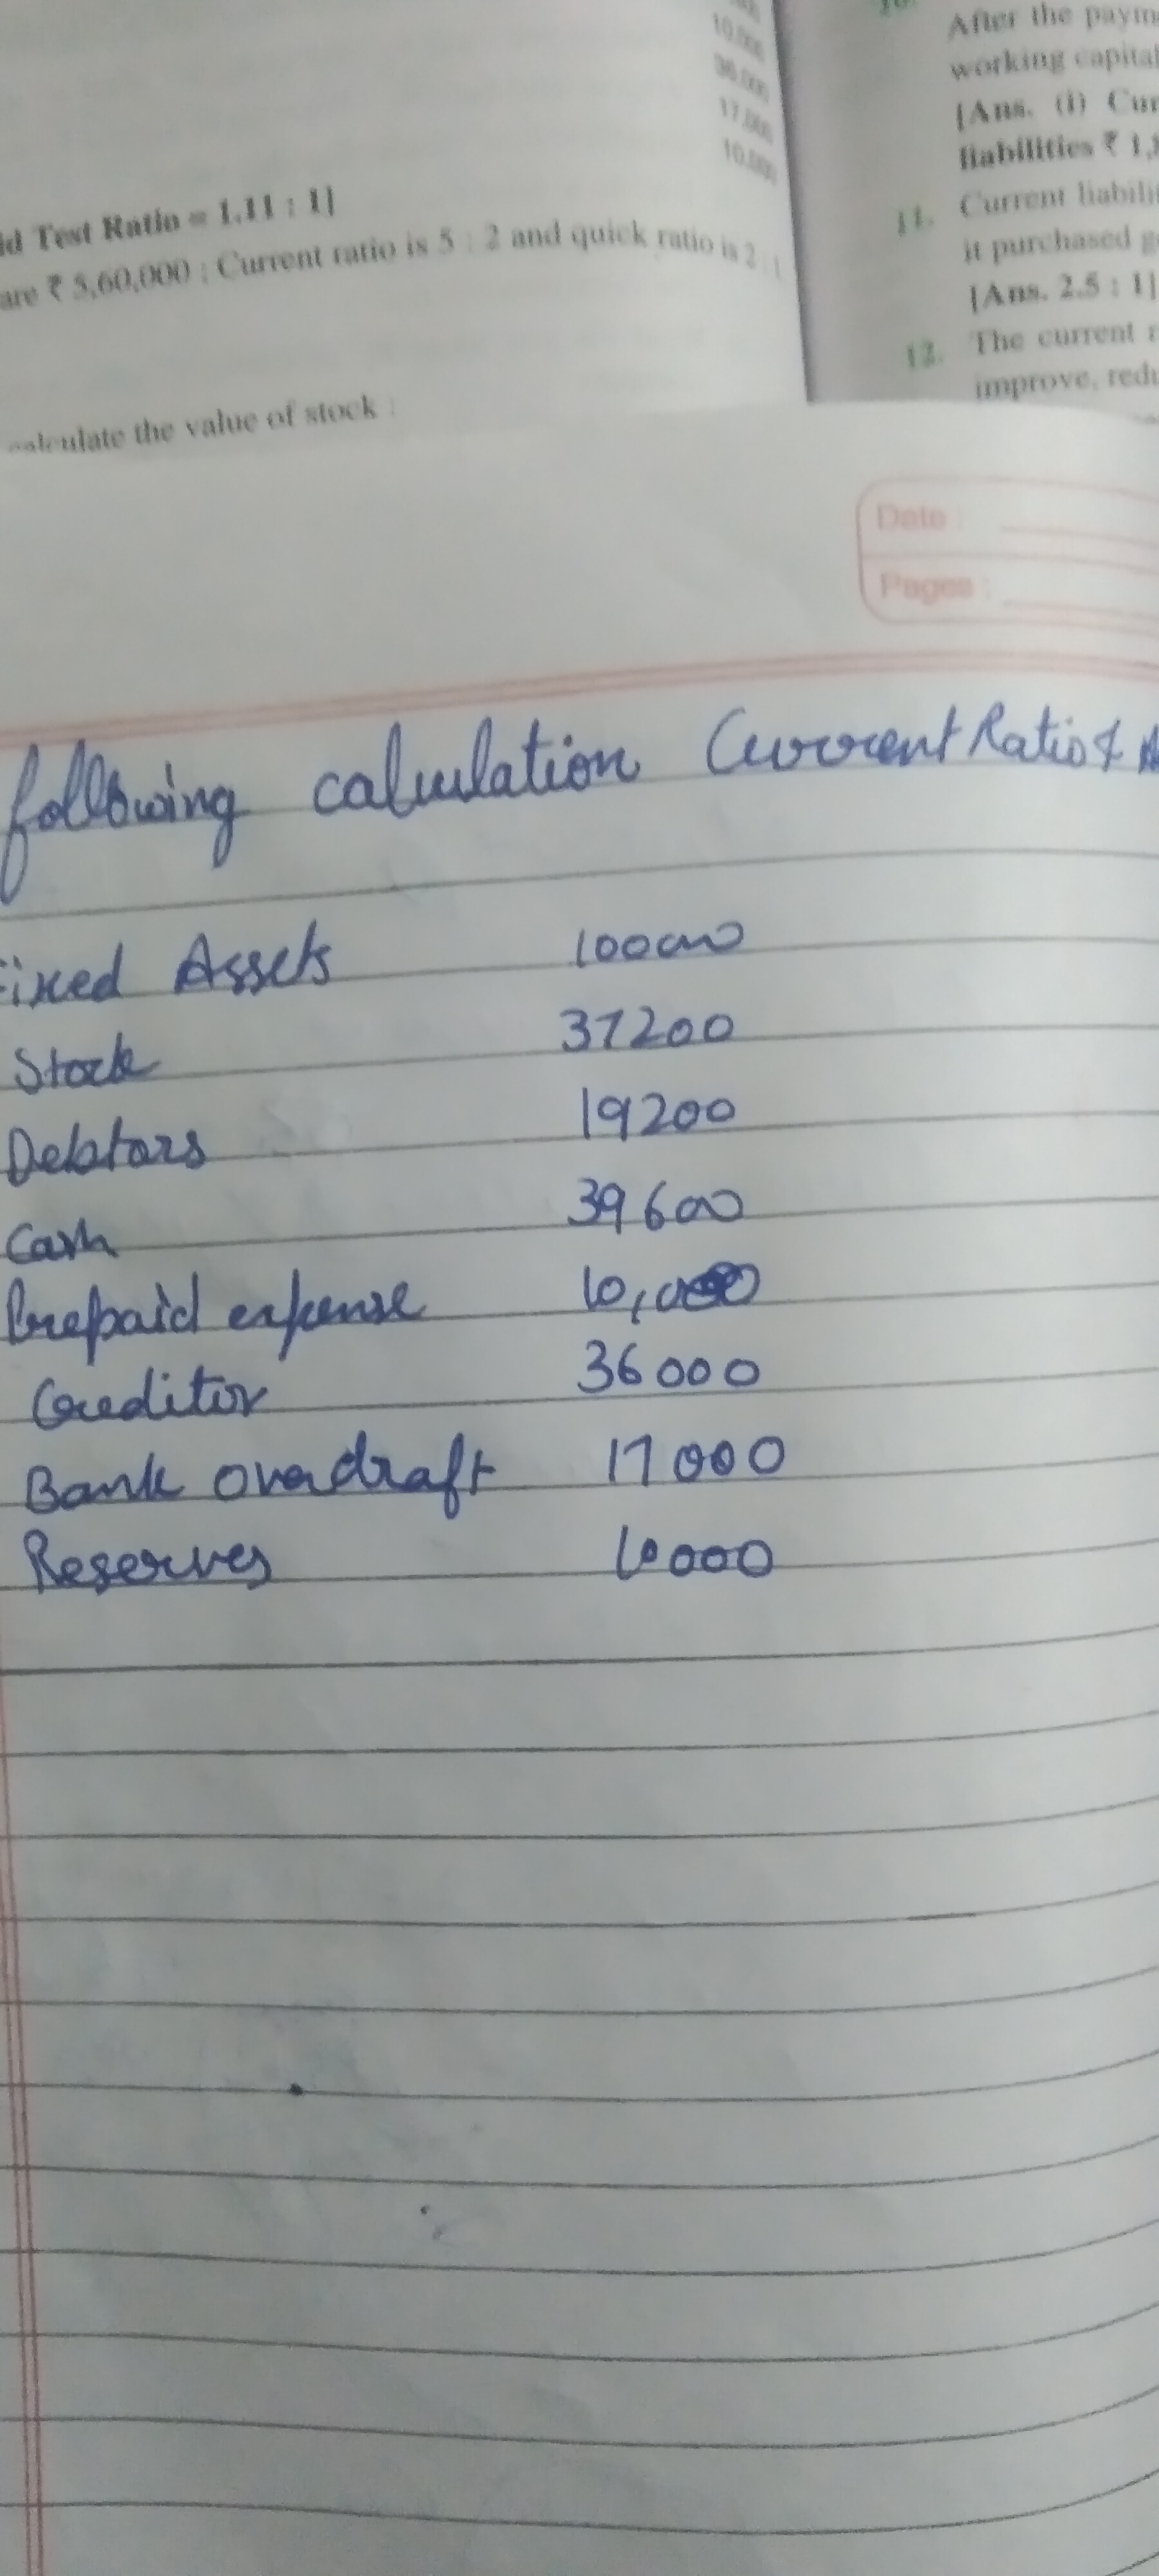 10,000
36,000
17,000
10,000
id Test Ratio = 1.11 : 1]
are ₹ 5,60,000 ; Current ratio is 5 : 2 and quick ratio is 2 : 1
calculate the value of stock :
After the paym
working capital
[Ans. (i) Cur
liabilities ₹ 1,
11. Current liabili
it purchased g
[Ans. 2.5 : 1]
12. The current r
improve, redu
Date :
Pages :
following calculation Current Ratio &
Fixed Assets 100000
Stock 37200
Debtors 19200
Cash 39600
Prepaid expense 10,000
Creditor 36000
Bank overdraft 17000
Reserves 10000